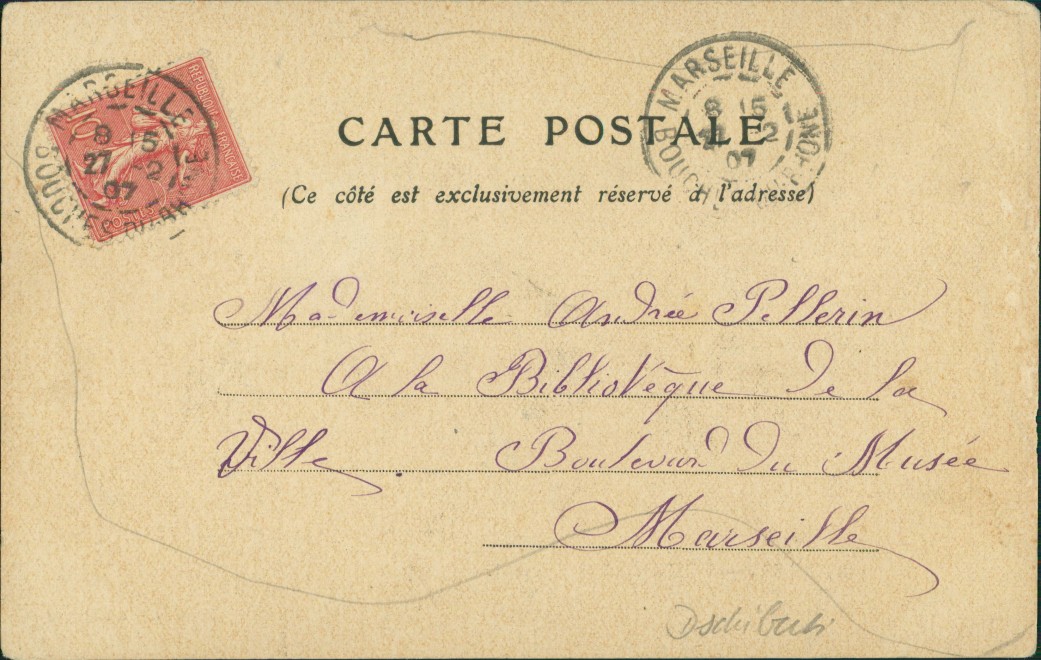 RÉPUBLIQUE FRANÇAISE
10
POSTES
MARSEILLE
8 15
27 2
07
BOUCHES DU RHONE
MARSEILLE
8 15
27 2
07
BOUCH RHONE
CARTE POSTALE
(Ce côté est exclusivement réservé à l'adresse)
Mademoiselle Andrée Pellerin
A la Bibliotèque de la
Ville Boulevard du Musée
Marseille
Dschibuti